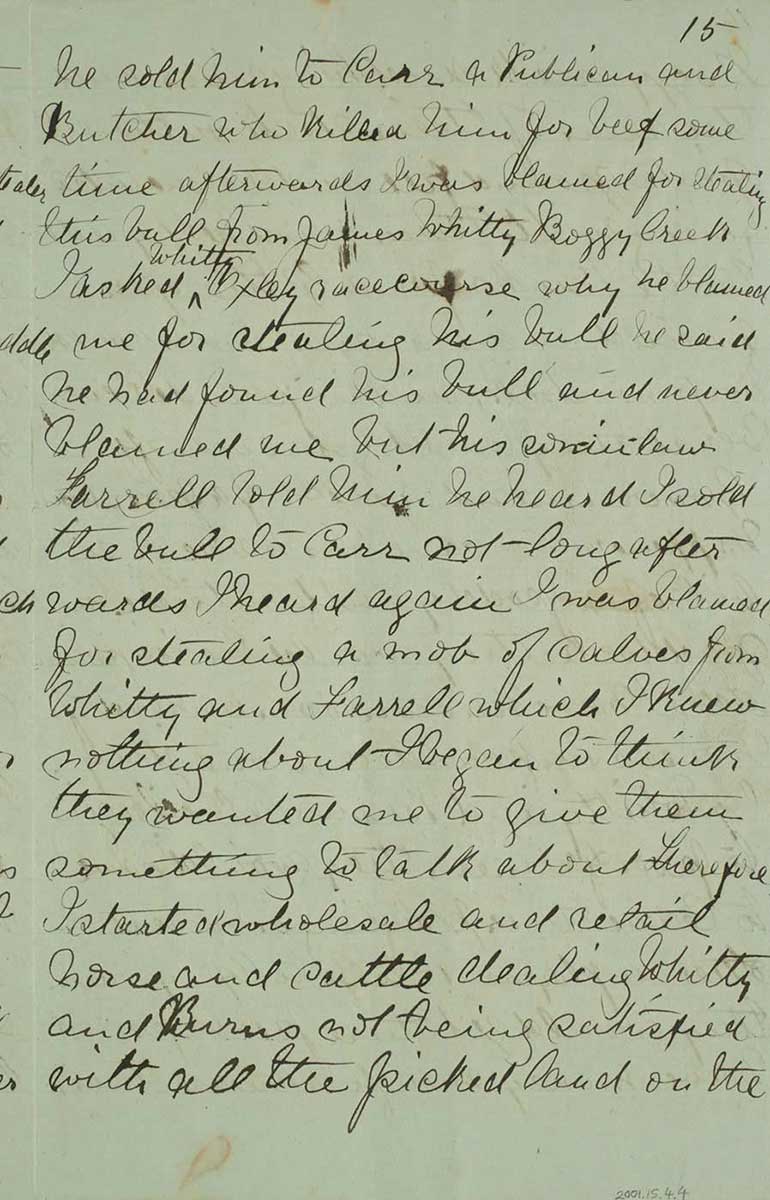 15
he sold him to Carr a Publican and
Butcher who killed him for beef some
time afterwards I was blamed for stealing
this bull from James Whitty Boggy Creek
I asked Whitty Oxley racecourse why he blamed
me for stealing his bull he said
he had found his bull and never
blamed me but his soninlaw
Farrell told him he heard I sold
the bull to Carr not long after
wards I heard again I was blamed
for stealing a mob of calves from
Whitty and Farrell which I knew
nothing about I began to think
they wanted me to give them
something to talk about Therefore
I started wholesale and retail
horse and cattle dealing Whitty
and Burns not being satisfied
with all the picked land on the
2001.15.4.4